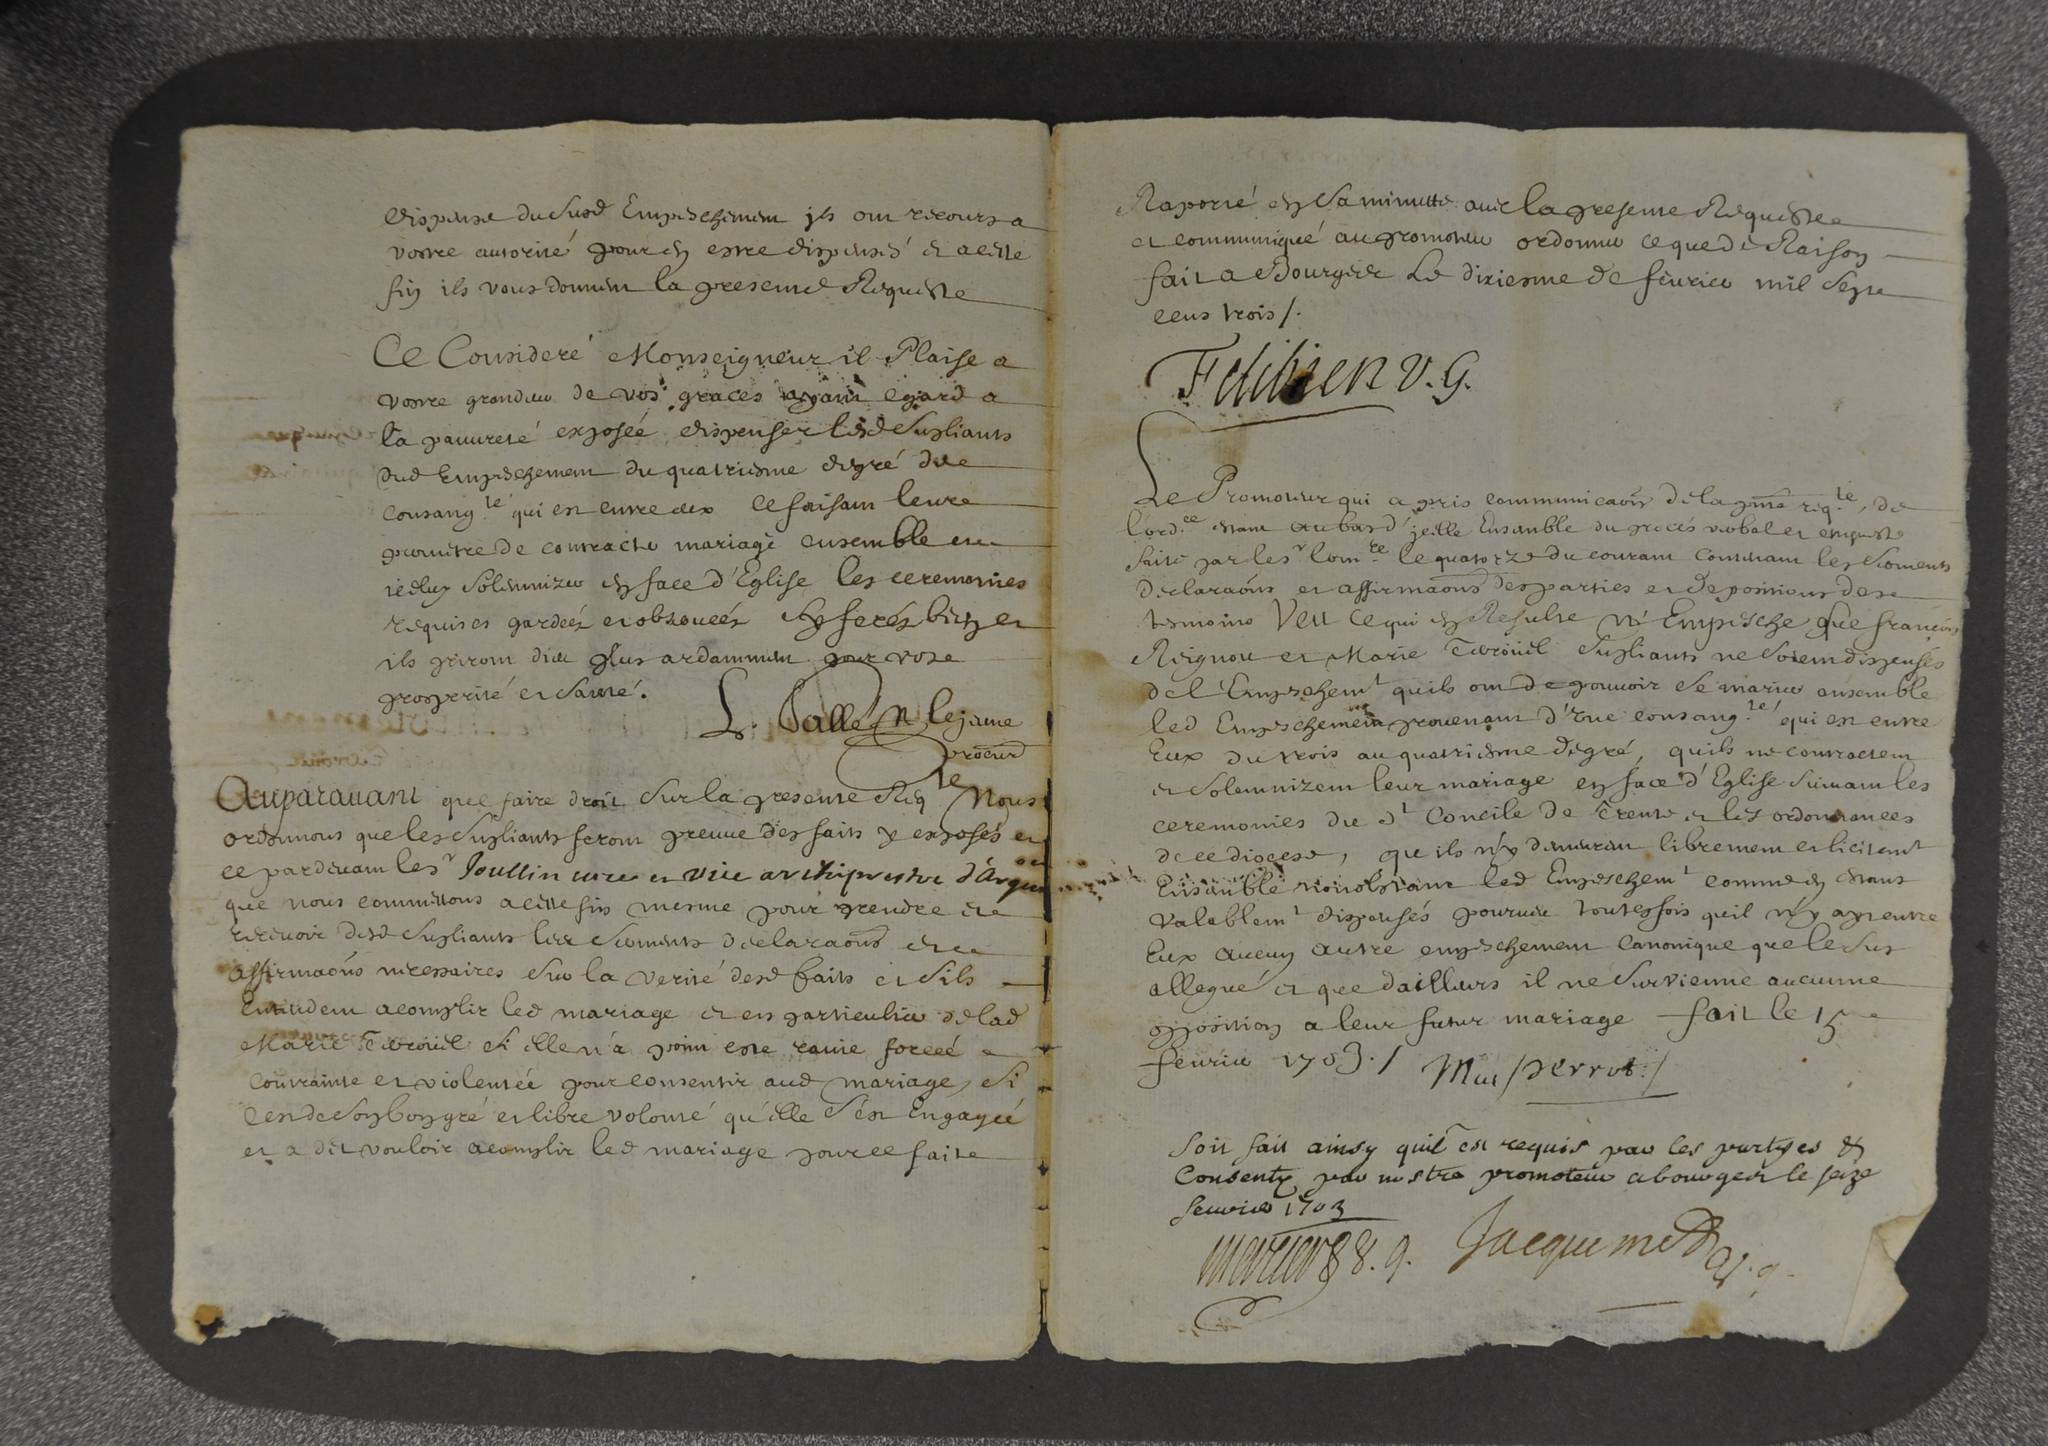 dispense du susd Empeschement ils ont recours a
vostre autorité pour en estre dispensés et a cette
fin ils vous donnent la presente Requeste
Ce Consideré Monseigneur il Plaise a
vostre grandeur de vos graces ayant egard a
la pauvreté exposée dispenser lesd Supliants
dud Empeschement du quatriesme degré de
consang.té qui est entre eux ce faisant leur
permettre de contracter mariage ensemble et
iceluy solemnizer en face d'Eglise les ceremonies
requises gardées et observées Et ferés bien et
ils priront dieu plus ardamment pour vostre
prosperité et santé.
L. Sallé lejeune
procur
Auparavant que faire droit Sur la presente Req.te Nous
ordonnons que les Supliants feront preuve des faits y exposés et
ce pardevant le sr Joullin curé et vice archiprestre d'Argen
que nous commettons a cette fin mesme pour prendre et
recevoir desd Supliants les serments declaraõns et
affirmaõns necessaires Sur la verité desd faits et s'ils
Entendent acomplir led mariage et en particulier de lad
Marie Terouil si elle n'a point esté ravie forcée
contrainte et violentée pour consentir aud mariage, si
c'est de son bon gré et libre volonté qu'elle s'est Engagée
et a dit vouloir acomplir led mariage pour ce fait
Raporté en sa minutte avec la presente Requeste
et communiqué au promoteur ordonner ce que de Raison
fait a Bourges Le dixiesme de fevrier mil Sept
cens trois /.
Felibien v.g.
Le Promoteur qui a pris communicaõn de la pnte req.te, de
l'ord.ce estant au bas d'icelle Ensemble du procés verbal et enqueste
faite par le sr Com.re le quatorze du courant contenant les serments
declaraõns et affirmaõns des parties et depositions des
temoins Veu ce qui en Resulte N'Empesche que françois
Reignou et Marie Terouil Supliants ne soient dispensés
de l'Empeschem.t quils ont de pouvoir se marier ensemble
led Empeschement provenant d'une consang.té qui est entre
Eux du trois au quatriesme degré, quils ne contractent
et solemnizent leur mariage en face d'Eglise suivant les
ceremonies du st Concile de Trente et les ordonnances
de ce diocese, qu'ils n'y demeurent librement et licitem.t
Ensemble nonobstant led Empeschem.t comme en estans
valablem.t dispensés pourveu toutesfois qu'il n'y ayt entre
Eux aucun autre empeschement canonique que le sus
allegué et que d'ailleurs il ne survienne aucune
opposition a leur futur mariage fait le 15
fevrier 1703. / Perrot /
Soit fait ainsy quil est requis par les partyes &
Consenty par nostre promoteur a bourges le seize
fevrier 1703
v.g. Jacquemet v.g.